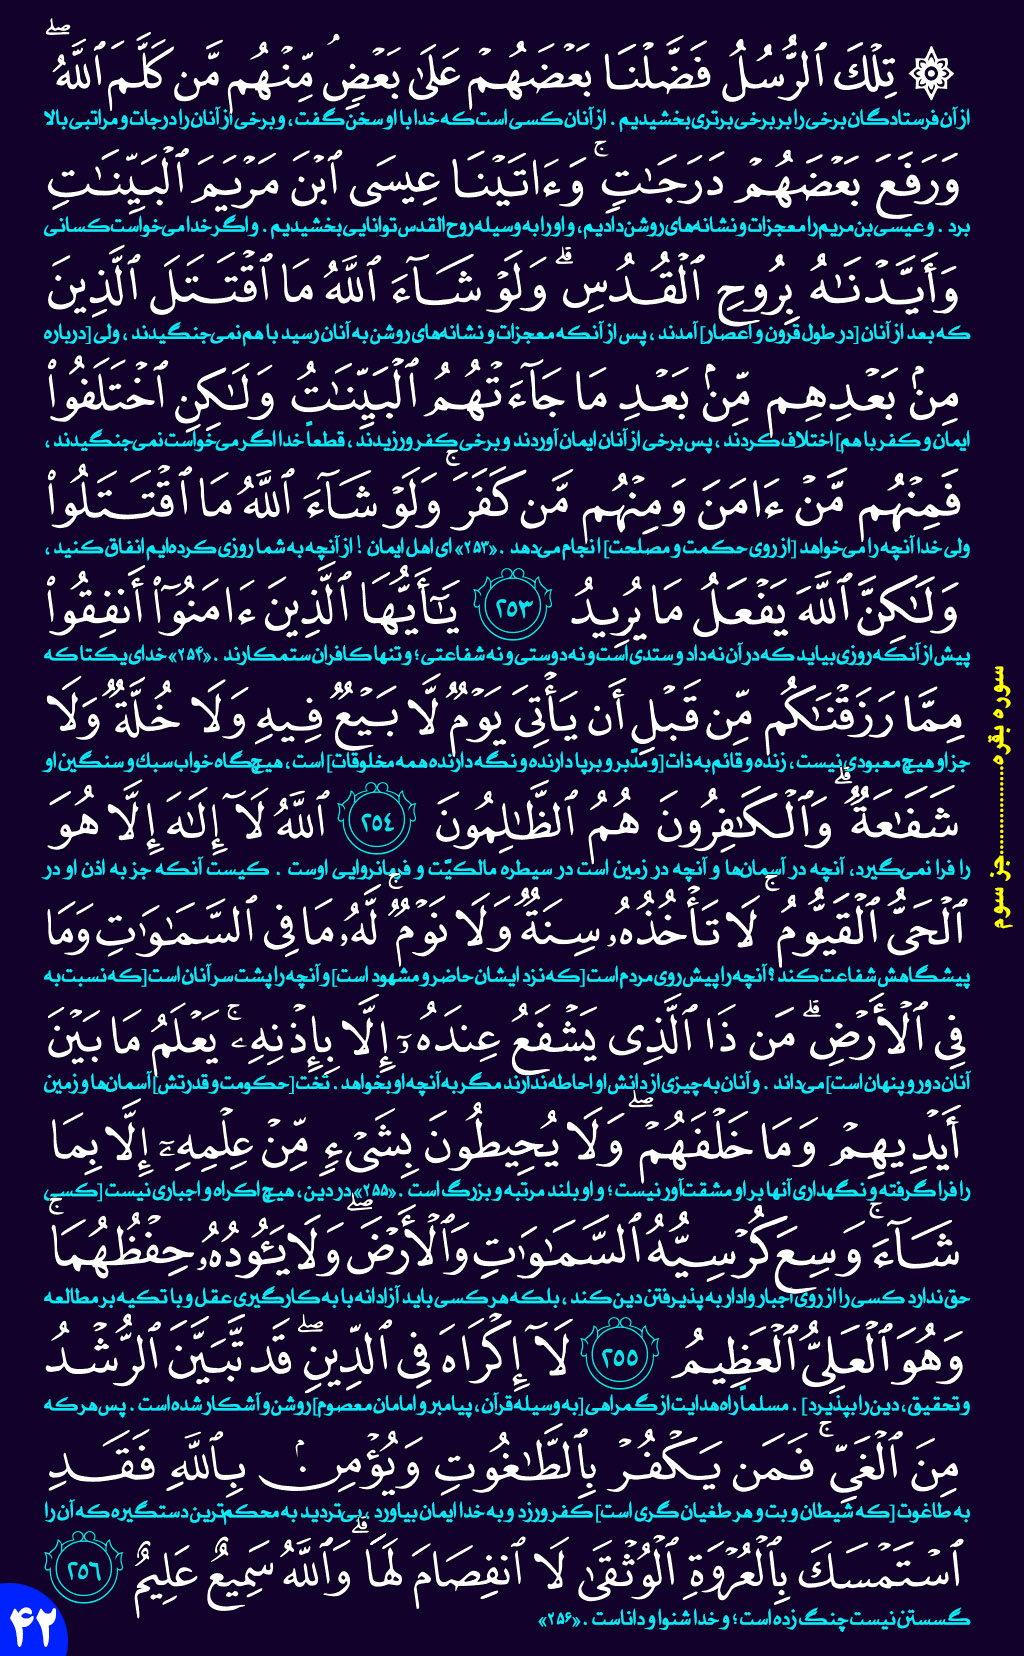 ۞ تِلْكَ ٱلرُّسُلُ فَضَّلْنَا بَعْضَهُمْ عَلَىٰ بَعْضٍۢ مِّنْهُم مَّن كَلَّمَ ٱللَّهُ ۖ
از آن فرستادگان برخی را بر برخی برتری بخشیدیم . از آنان کسی است که خدا با او سخن گفت ، و برخی از آنان را درجات و مراتبی بالا
وَرَفَعَ بَعْضَهُمْ دَرَجَـٰتٍۢ ۚ وَءَاتَيْنَا عِيسَى ٱبْنَ مَرْيَمَ ٱلْبَيِّنَـٰتِ
برد . و عیسی بن مریم را معجزات و نشانه‌های روشن دادیم، و او را به وسیله روح القدس توانایی بخشیدیم . و اگر خدا می‌خواست کسانی
وَأَيَّدْنَـٰهُ بِرُوحِ ٱلْقُدُسِ ۗ وَلَوْ شَآءَ ٱللَّهُ مَا ٱقْتَتَلَ ٱلَّذِينَ
که بعد از آنان [در طول قرون و اعصار] آمدند ، پس از آنکه معجزات و نشانه‌های روشن به آنان رسید با هم نمی‌جنگیدند ، ولی [درباره
مِنۢ بَعْدِهِم مِّنۢ بَعْدِ مَا جَآءَتْهُمُ ٱلْبَيِّنَـٰتُ وَلَـٰكِنِ ٱخْتَلَفُوا۟
ایمان و کفر با هم] اختلاف کردند ، پس برخی از آنان ایمان آوردند و برخی کفر ورزیدند ، قطعاً خدا اگر می‌خواست نمی‌جنگیدند ،
فَمِنْهُم مَّنْ ءَامَنَ وَمِنْهُم مَّن كَفَرَ ۚ وَلَوْ شَآءَ ٱللَّهُ مَا ٱقْتَتَلُوا۟
ولی خدا آنچه را می‌خواهد [از روی حکمت و مصلحت] انجام می‌دهد . «۲۵۳» ای اهل ایمان ! از آنچه به شما روزی کرده‌ایم انفاق کنید ،
وَلَـٰكِنَّ ٱللَّهَ يَفْعَلُ مَا يُرِيدُ ٢٥٣ يَـٰٓأَيُّهَا ٱلَّذِينَ ءَامَنُوٓا۟ أَنفِقُوا۟
پیش از آنکه روزی بیاید که در آن نه داد و ستدی است و نه دوستی و نه شفاعتی ؛ و تنها کافران ستمکارند . «۲۵۴» خدای یکتا که
مِمَّا رَزَقْنَـٰكُم مِّن قَبْلِ أَن يَأْتِىَ يَوْمٌۭ لَّا بَيْعٌۭ فِيهِ وَلَا خُلَّةٌۭ وَلَا
جز او هیچ معبودی نیست ، زنده و قائم به ذات [و مدّبر و برپا دارنده و نگه دارنده همه مخلوقات] است ، هیچ‌گاه خواب سبک و سنگین او
شَفَـٰعَةٌۭ ۗ وَٱلْكَـٰفِرُونَ هُمُ ٱلظَّـٰلِمُونَ ٢٥٤ ٱللَّهُ لَآ إِلَـٰهَ إِلَّا هُوَ
را فرا نمی‌گیرد، آنچه در آسمان‌ها و آنچه در زمین است در سیطره مالکیّت و فرمانروایی اوست . کیست آنکه جز به اذن او در
ٱلْحَىُّ ٱلْقَيُّومُ ۚ لَا تَأْخُذُهُۥ سِنَةٌۭ وَلَا نَوْمٌۭ ۚ لَّهُۥ مَا فِى ٱلسَّمَـٰوَٰتِ وَمَا
پیشگاهش شفاعت کند ؟ آنچه را پیش روی مردم است [که نزد ایشان حاضر و مشهود است] و آنچه را پشت سر آنان است [که نسبت به
فِى ٱلْأَرْضِ ۗ مَن ذَا ٱلَّذِى يَشْفَعُ عِندَهُۥٓ إِلَّا بِإِذْنِهِۦ ۚ يَعْلَمُ مَا بَيْنَ
آنان دور و پنهان است] می‌داند . و آنان به چیزی از دانش او احاطه ندارند مگر به آنچه او بخواهد . تخت [حکومت و قدرتش] آسمان‌ها و زمین
أَيْدِيهِمْ وَمَا خَلْفَهُمْ ۖ وَلَا يُحِيطُونَ بِشَىْءٍۢ مِّنْ عِلْمِهِۦٓ إِلَّا بِمَا
را فرا گرفته و نگهداری آنها بر او مشقت‌آور نیست ؛ و او بلند مرتبه و بزرگ است . «۲۵۵» در دین، هیچ اکراه و اجباری نیست [کسی
شَآءَ ۚ وَسِعَ كُرْسِيُّهُ ٱلسَّمَـٰوَٰتِ وَٱلْأَرْضَ ۖ وَلَا يَـُٔودُهُۥ حِفْظُهُمَا ۚ
حق ندارد کسی را از روی اجبار وادار به پذیرفتن دین کند ، بلکه هر کسی باید آزادانه با به کارگیری عقل و با تکیه بر مطالعه
وَهُوَ ٱلْعَلِىُّ ٱلْعَظِيمُ ٢٥٥ لَآ إِكْرَاهَ فِى ٱلدِّينِ ۖ قَد تَّبَيَّنَ ٱلرُّشْدُ
و تحقیق، دین را بپذیرد] . مسلماً راه هدایت از گمراهی [به وسیله قرآن ، پیامبر و امامان معصوم] روشن و آشکار شده است . پس هر که
مِنَ ٱلْغَىِّ ۚ فَمَن يَكْفُرْ بِٱلطَّـٰغُوتِ وَيُؤْمِنۢ بِٱللَّهِ فَقَدِ
به طاغوت [که شیطان و بت و هر طغیان گری است] کفر ورزد و به خدا ایمان بیاورد ، بی‌تردید به محکم‌ترین دستگیره که آن را
ٱسْتَمْسَكَ بِٱلْعُرْوَةِ ٱلْوُثْقَىٰ لَا ٱنفِصَامَ لَهَا ۗ وَٱللَّهُ سَمِيعٌ عَلِيمٌ ٢٥٦
گسستن نیست چنگ زده است ؛ و خدا شنوا و داناست . «۲۵۶»
سوره بقره....................جز سوم
۴۲